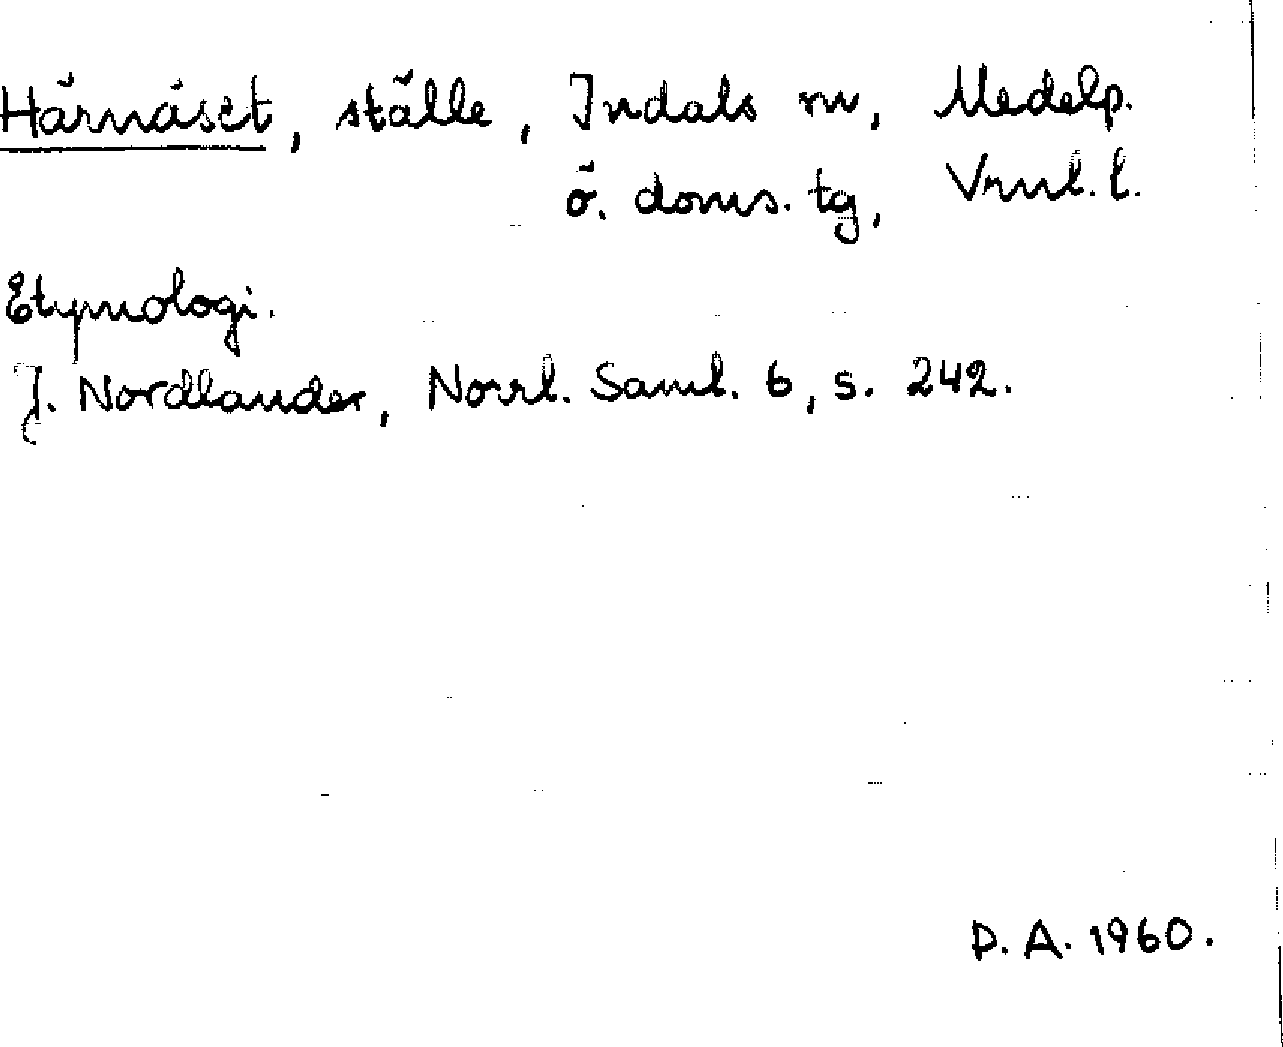 Härnäset, ställe, Indals sn, Medelp.
ö. doms. tg, Vrnl. l.
Etymologi.
J. Nordlander, Norrl. Saml. 6, s. 242.
D. A. 1960.